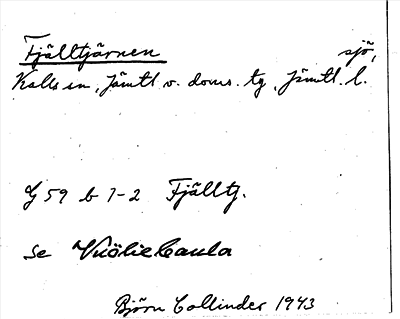 Fjälltjärnen sjö,
Kalls sn, Jämtl. v. doms. tg, Jämtl. l.
G 59 b 1-2 Fjälltj.
Se Vuöliecaula
Björn Collinder 1943